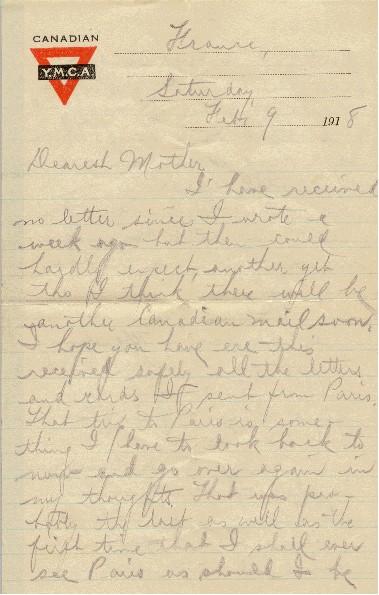 CANADIAN
Y.M.C.A.
France,
Saturday
Feb 9 1918
Dearest Mother
I have received
no letter since I wrote a
week ago but then could
hardly expect another yet
tho I think there will be
another Canadian mail soon.
I hope you have ere this
received safely all the letters
and cards I sent from Paris.
That trip to Paris is some-
thing I have to look back to
now and go over again in
my thoughts. That was pro-
bably the last as well as the
first time that I shall ever
see Paris as should I be